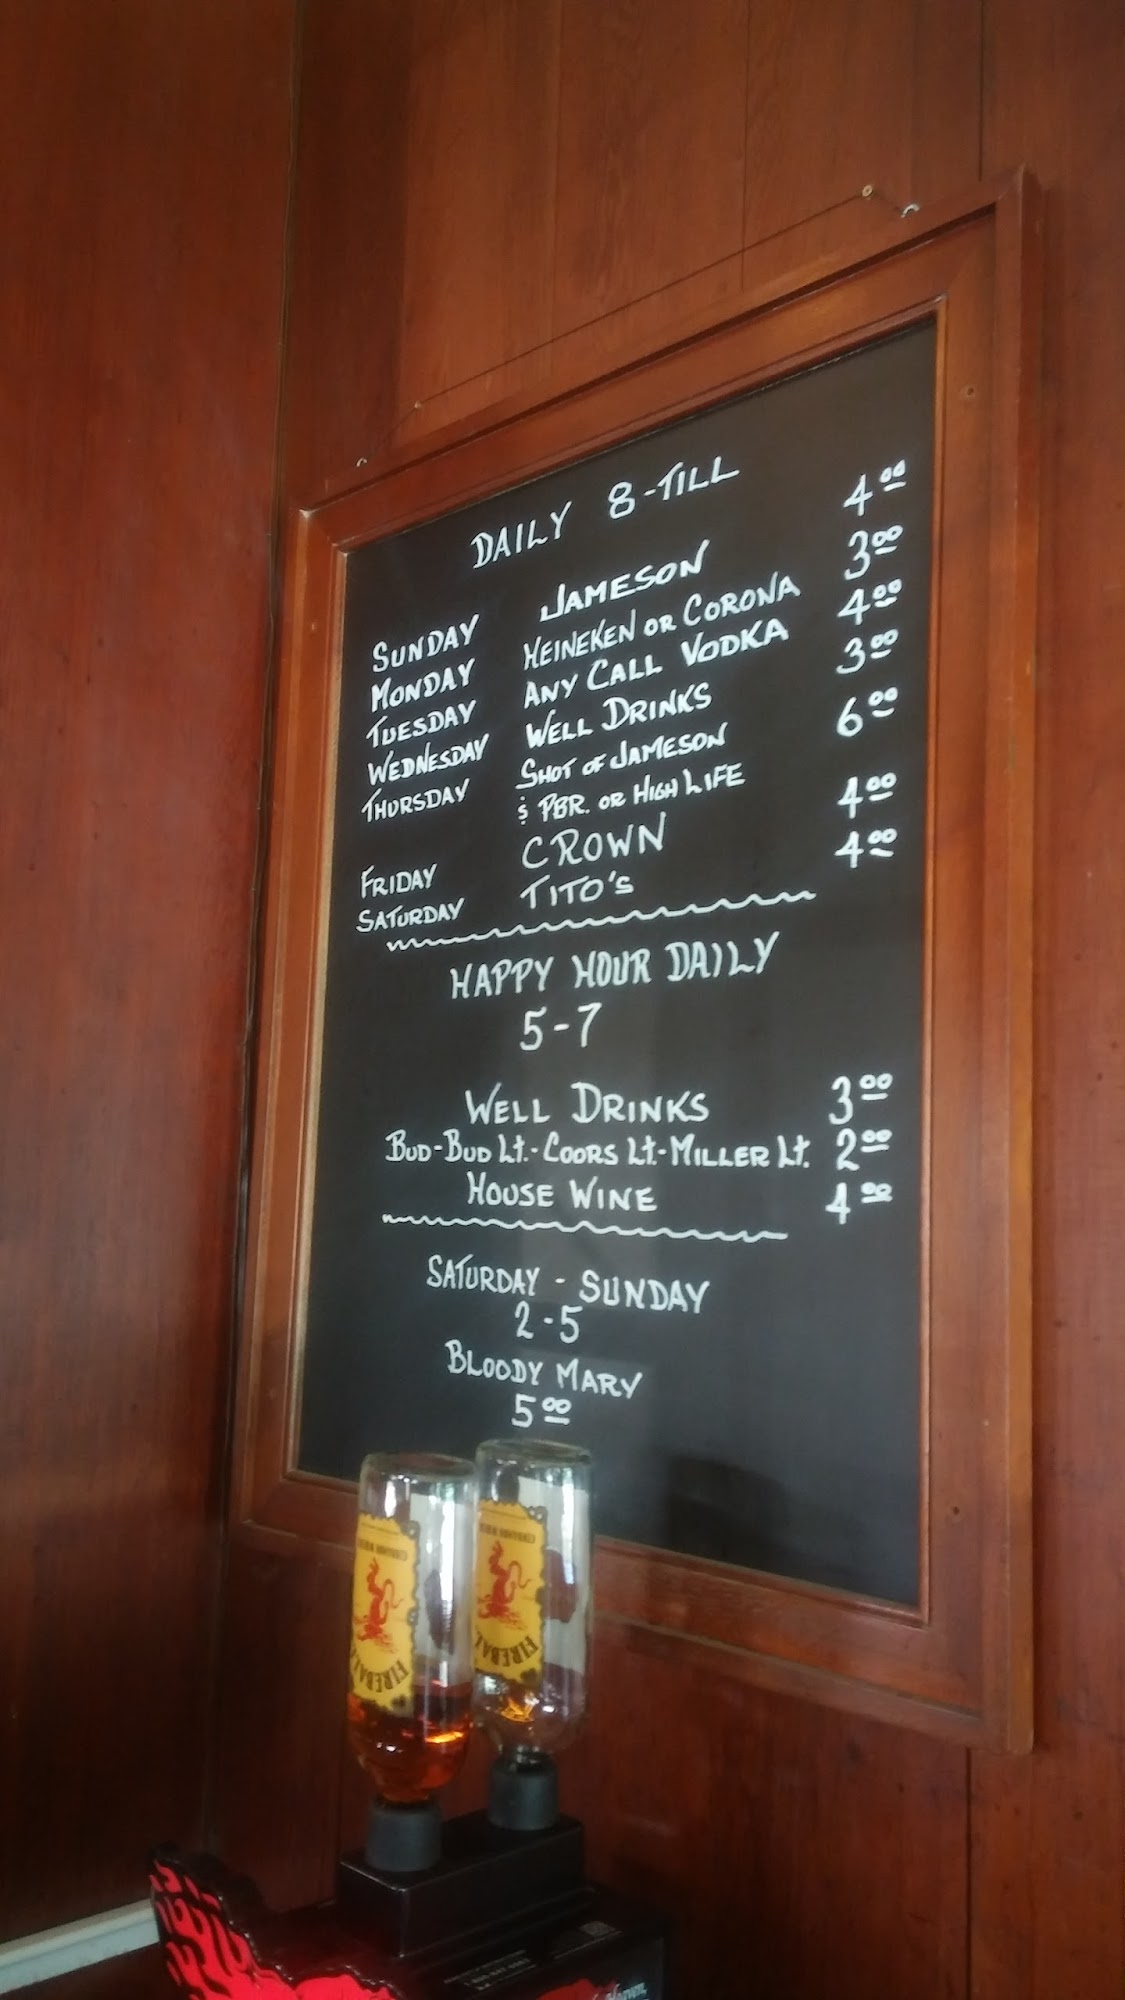 DAILY 8-TILL
SUNDAY JAMESON 4.00
MONDAY HEINEKEN OR CORONA 3.00
TUESDAY ANY CALL VODKA 4.00
WEDNESDAY WELL DRINKS 3.00
THURSDAY SHOT OF JAMESON 6.00
& PBR. OR HIGH LIFE
FRIDAY CROWN 4.00
SATURDAY TITO'S 4.00
HAPPY HOUR DAILY
5-7
WELL DRINKS 3.00
BUD-BUD LT.-COORS LT.-MILLER LT. 2.00
HOUSE WINE 4.00
SATURDAY - SUNDAY
2-5
BLOODY MARY
5.00
FIREBALL
FIREBALL